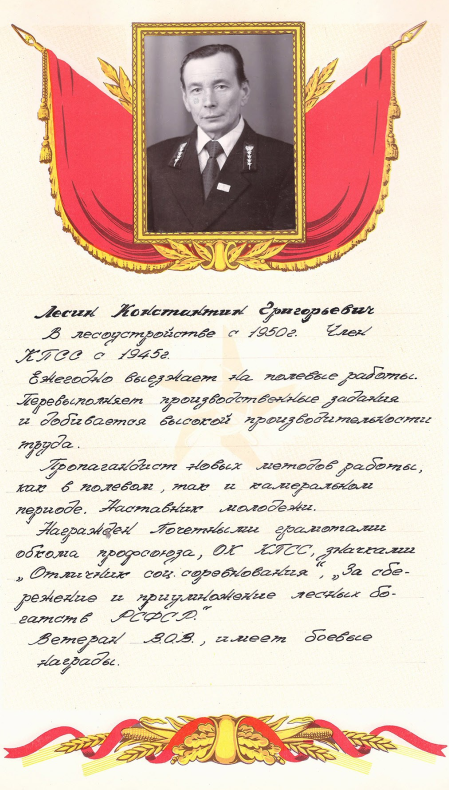 Лесин Константин Григорьевич
В лесоустройстве с 1950г. Член
КПСС с 1945г.
Ежегодно выезжает на полевые работы.
Перевыполняет производственные задания
и добивается высокой производительности
труда.
Пропагандист новых методов работы,
как в полевом, так и камеральном
периоде. Наставник молодежи.
Награжден Почетными грамотами
обкома профсоюза, ОК КПСС, значками
„Отличник соц. соревнования", „За сбе-
режение и приумножение лесных бо-
гатств РСФСР."
Ветеран В.О.В., имеет боевые
награды.